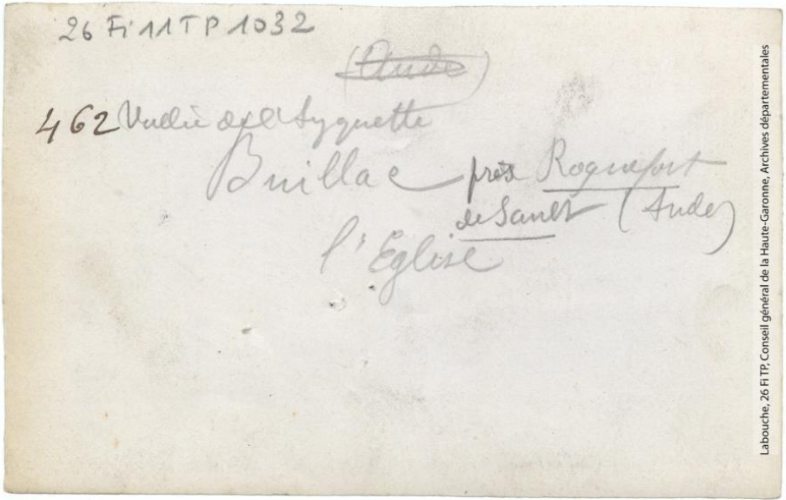 26 Fi 11 TP 1032
(Aude)
462 Vallée de l'Ayguette
Buillac près Roquefort
de Sault (Aude)
l'Eglise
Labouche, 26 FI TP, Conseil général de la Haute-Garonne, Archives départementales